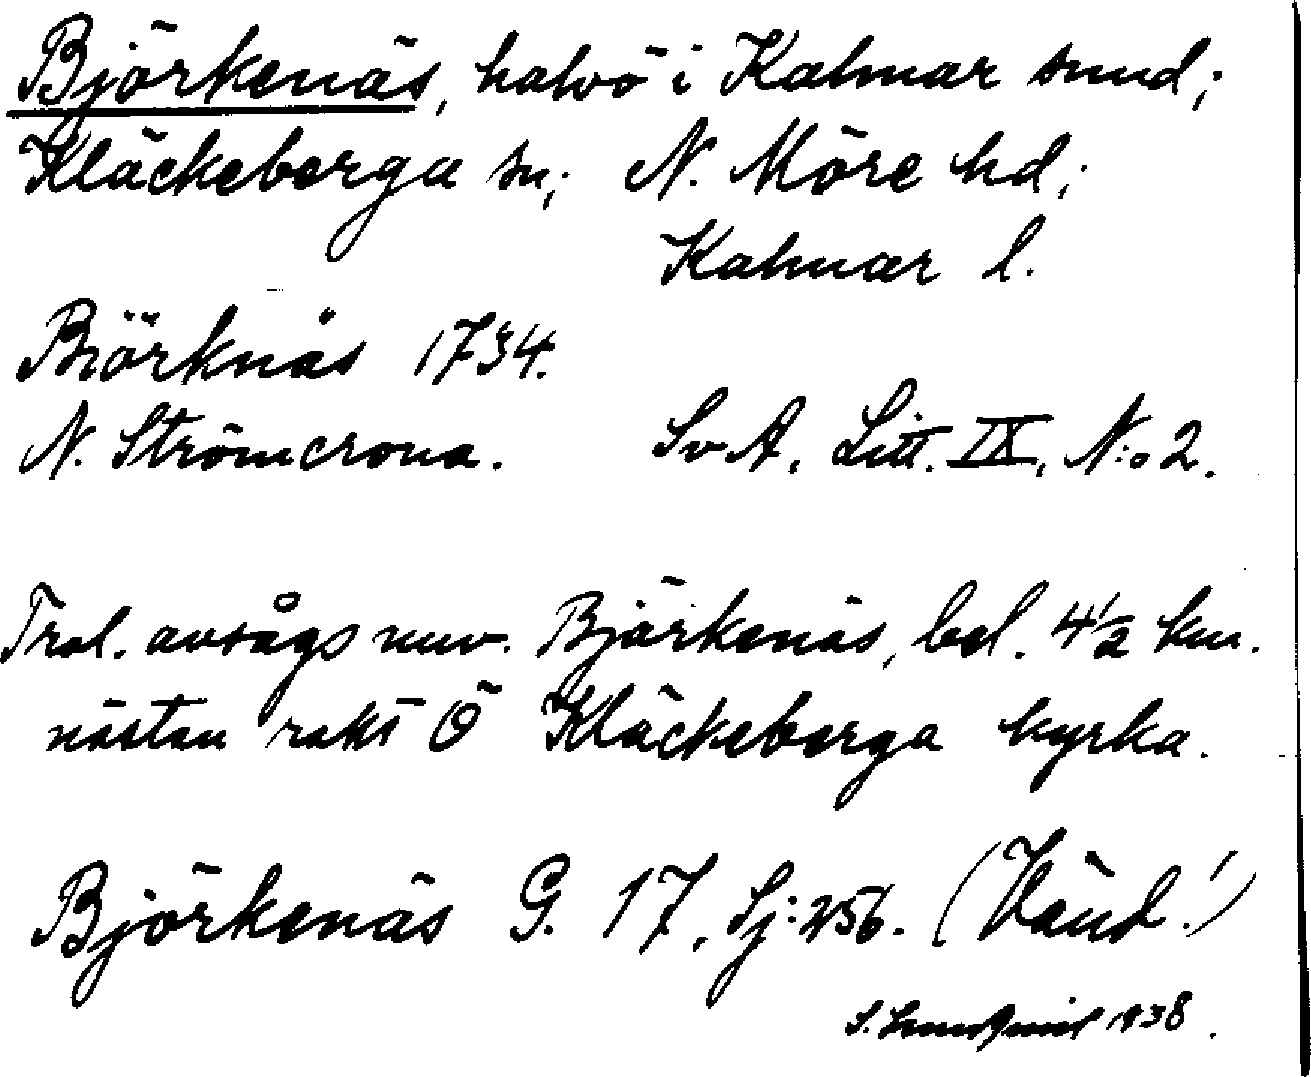 Björkenäs, halvö i Kalmar sund;
Kläckeberga sn; N. Möre hd;
Kalmar l.
Biörknäs 1734.
N. Strömcrona. SvA. Litt. IX, N:o 2.
Trol. avsågs nuv. Björkenäs, bel. 4 1/2 km.
nästan rakt Ö Kläckeberga kyrka.
Björkenäs G. 17, Sj: 256. (Vänd!)
S. Lundquist 1938.